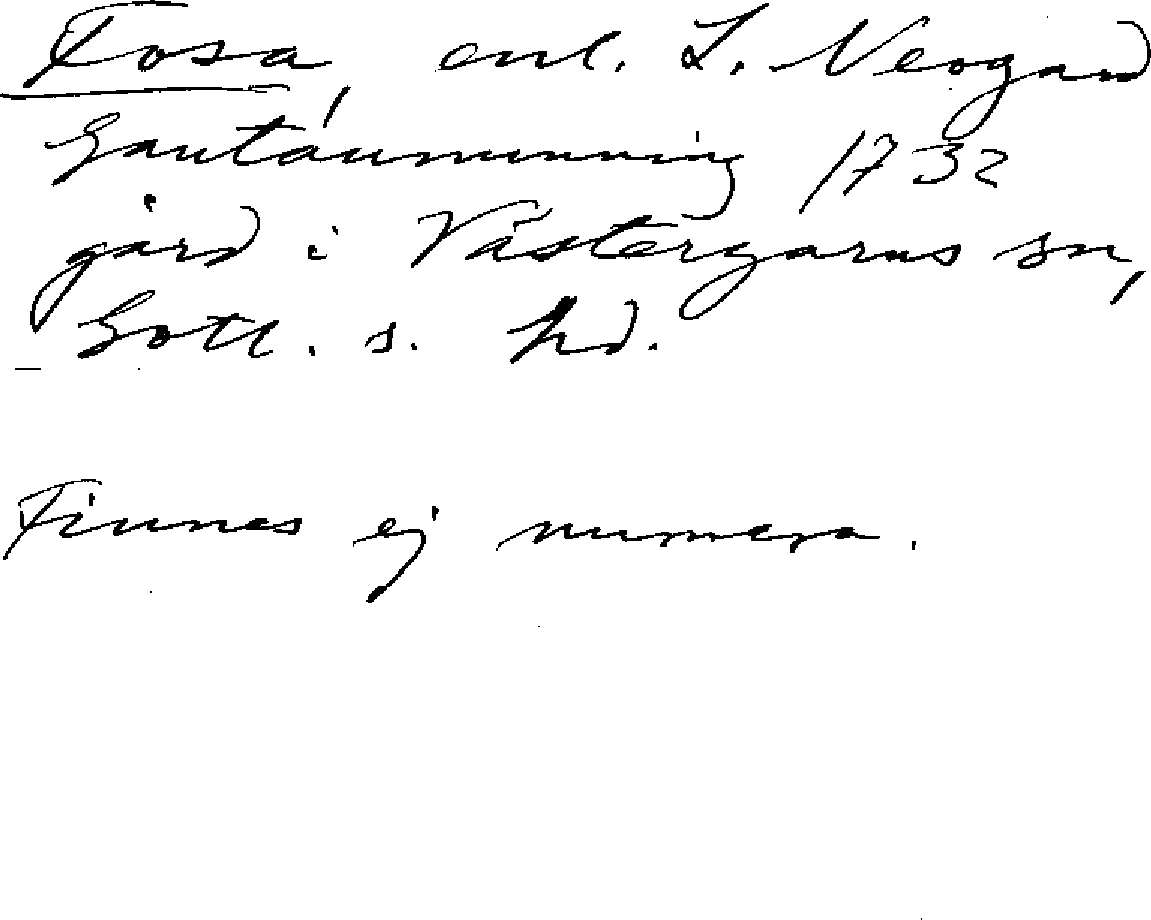 Fosa, enl. L. Neogard
Gautauminning 1732
gård i Västergarns sn,
Gotl. s. hd.
Finnes ej numera.